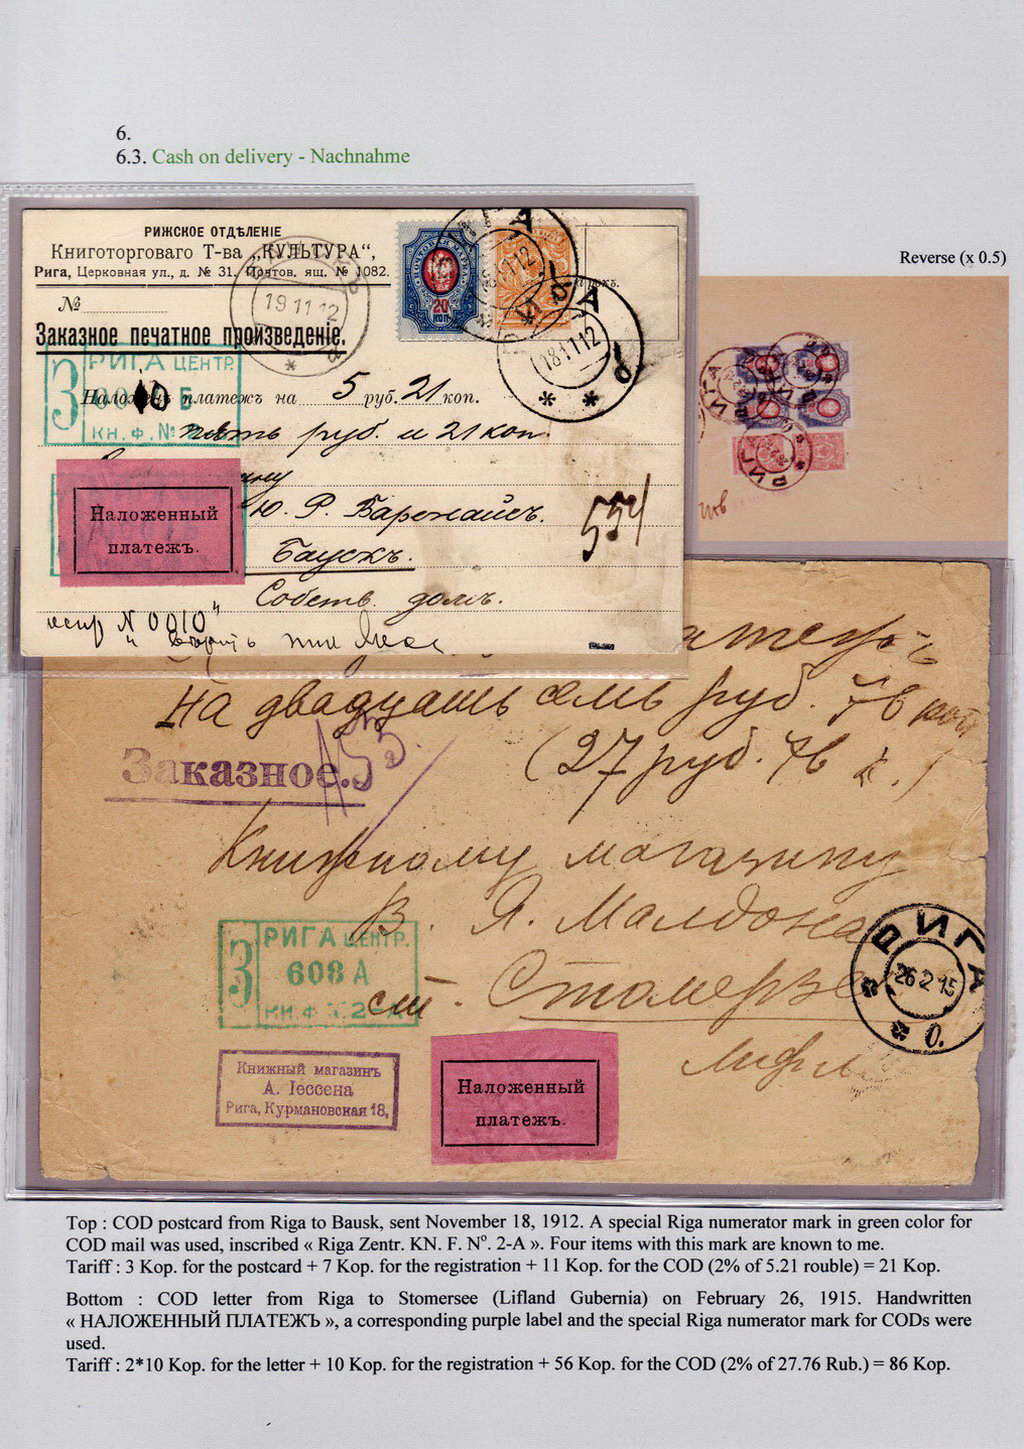 6.
6.3. Cash on delivery - Nachnahme
Reverse (x 0.5)
РИЖСКОЕ ОТДѢЛЕНІЕ
Книготорговаго Т-ва „КУЛЬТУРА“,
Рига, Церковная ул., д. № 31, Почтов. ящ. № 1082.
№
Заказное печатное произведеніе.
19 11 12
20
КОП
РИГА
18 11 12
З РИГА ЦЕНТР.
Б
КН. Ф. №
Налож платежъ на 5 руб. 21 коп.
пять руб. и 21 коп.
Ю. Р.
Баускъ.
Собств. домъ.
Наложенный
платежъ.
554
N 0010"
РИГА
На двадцать семь руб. 76 коп
(27 руб. 76 к.)
Заказное.
Книжному магазину
В. Я. Малдона
ст. Стомерзе
Лифл
З РИГА ЦЕНТР.
608 А
КН. Ф. 2
РИГА
26 2 15
О.
Книжный магазинъ
А. Іессена
Рига, Курмановская 18,
Наложенный
платежъ.
Top : COD postcard from Riga to Bausk, sent November 18, 1912. A special Riga numerator mark in green color for
COD mail was used, inscribed « Riga Zentr. KN. F. N°. 2-A ». Four items with this mark are known to me.
Tariff : 3 Kop. for the postcard + 7 Kop. for the registration + 11 Kop. for the COD (2% of 5.21 rouble) = 21 Kop.
Bottom : COD letter from Riga to Stomersee (Lifland Gubernia) on February 26, 1915. Handwritten
« НАЛОЖЕННЫЙ ПЛАТЕЖЪ », a corresponding purple label and the special Riga numerator mark for CODs were
used.
Tariff : 2*10 Kop. for the letter + 10 Kop. for the registration + 56 Kop. for the COD (2% of 27.76 Rub.) = 86 Kop.